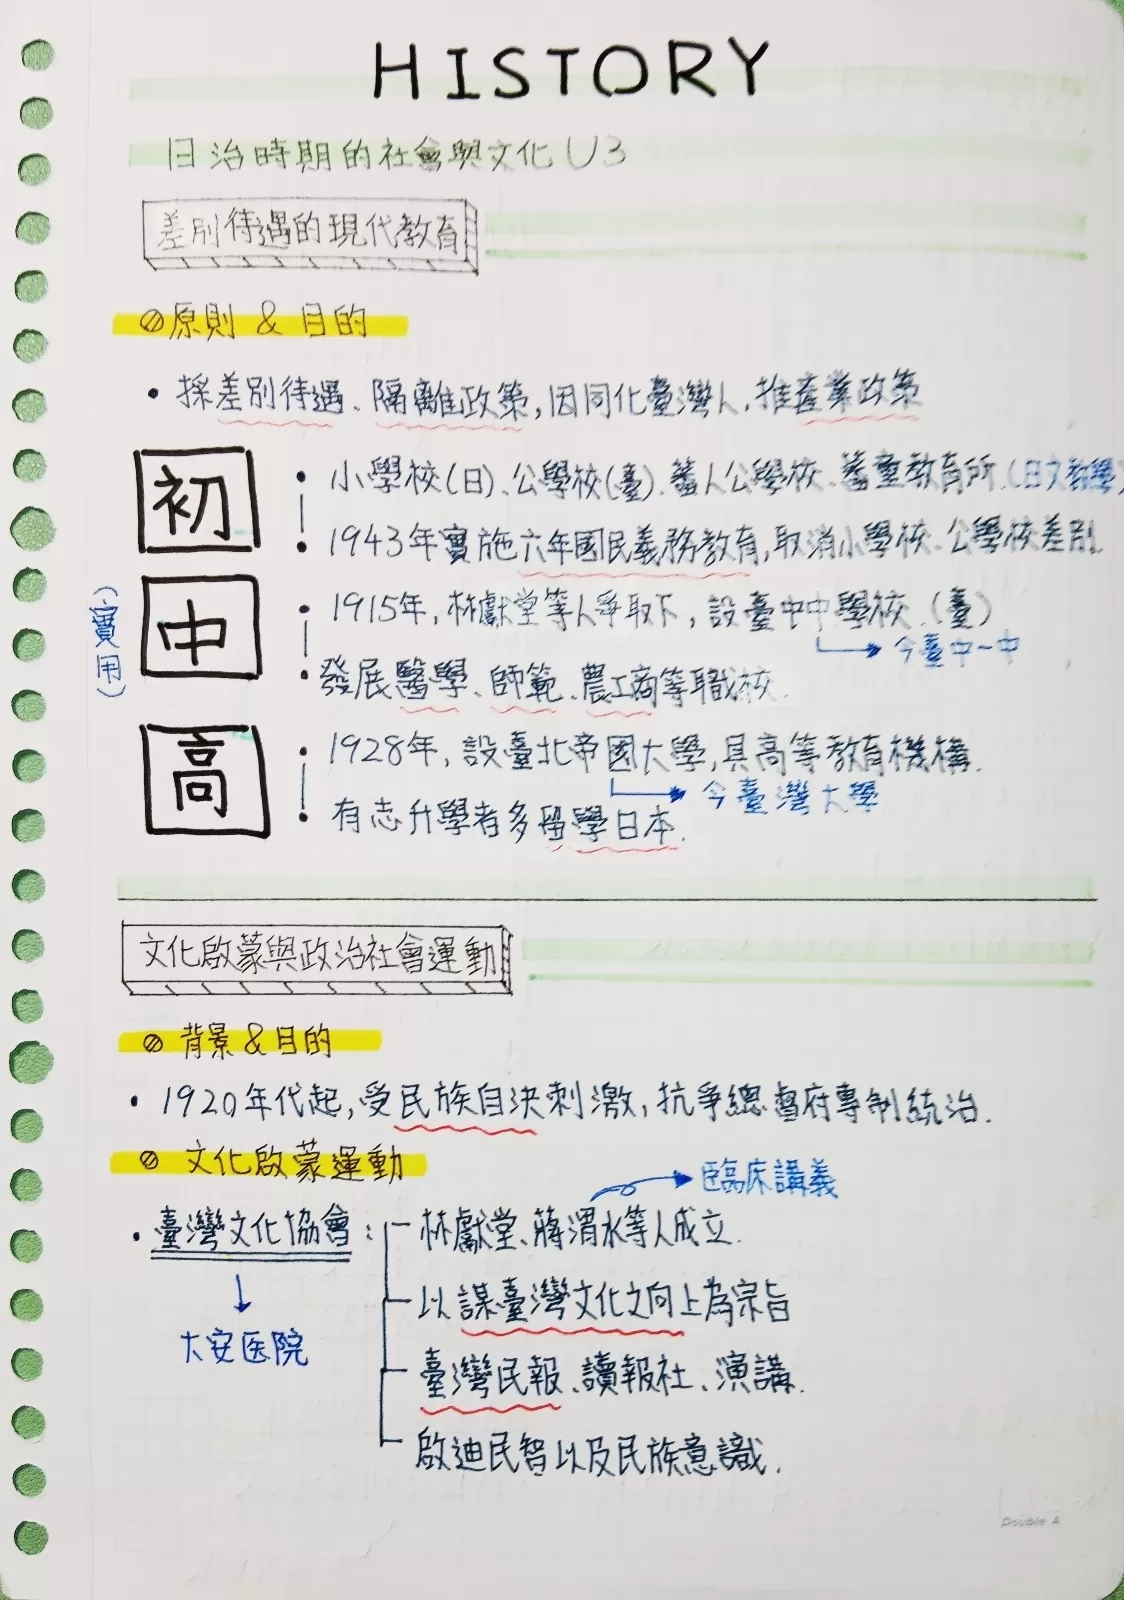 HISTORY
日治時期的社會與文化 U3
差別待遇的現代教育
原則 & 目的
• 採差別待遇、隔離政策,因同化臺灣人,推產業政策
初
• 小學校(日)、公學校(臺)、蕃人公學校、蕃童教育所.(日文教學)
• 1943年實施六年國民義務教育,取消小學校、公學校差別.
(實用)
中
• 1915年,林獻堂等人爭取下,設臺中中學校.(臺)
今臺中一中
• 發展醫學、師範、農工商等職校.
高
• 1928年,設臺北帝國大學,具高等教育機構.
今臺灣大學
• 有志升學者多留學日本.
文化啟蒙與政治社會運動
背景 & 目的
• 1920年代起,受民族自決刺激,抗爭總督府專制統治.
文化啟蒙運動
臨床講義
• 臺灣文化協會:
林獻堂、蔣渭水等人成立.
大安医院
以謀臺灣文化之向上為宗旨
臺灣民報、讀報社、演講.
啟迪民智以及民族意識.
Double A